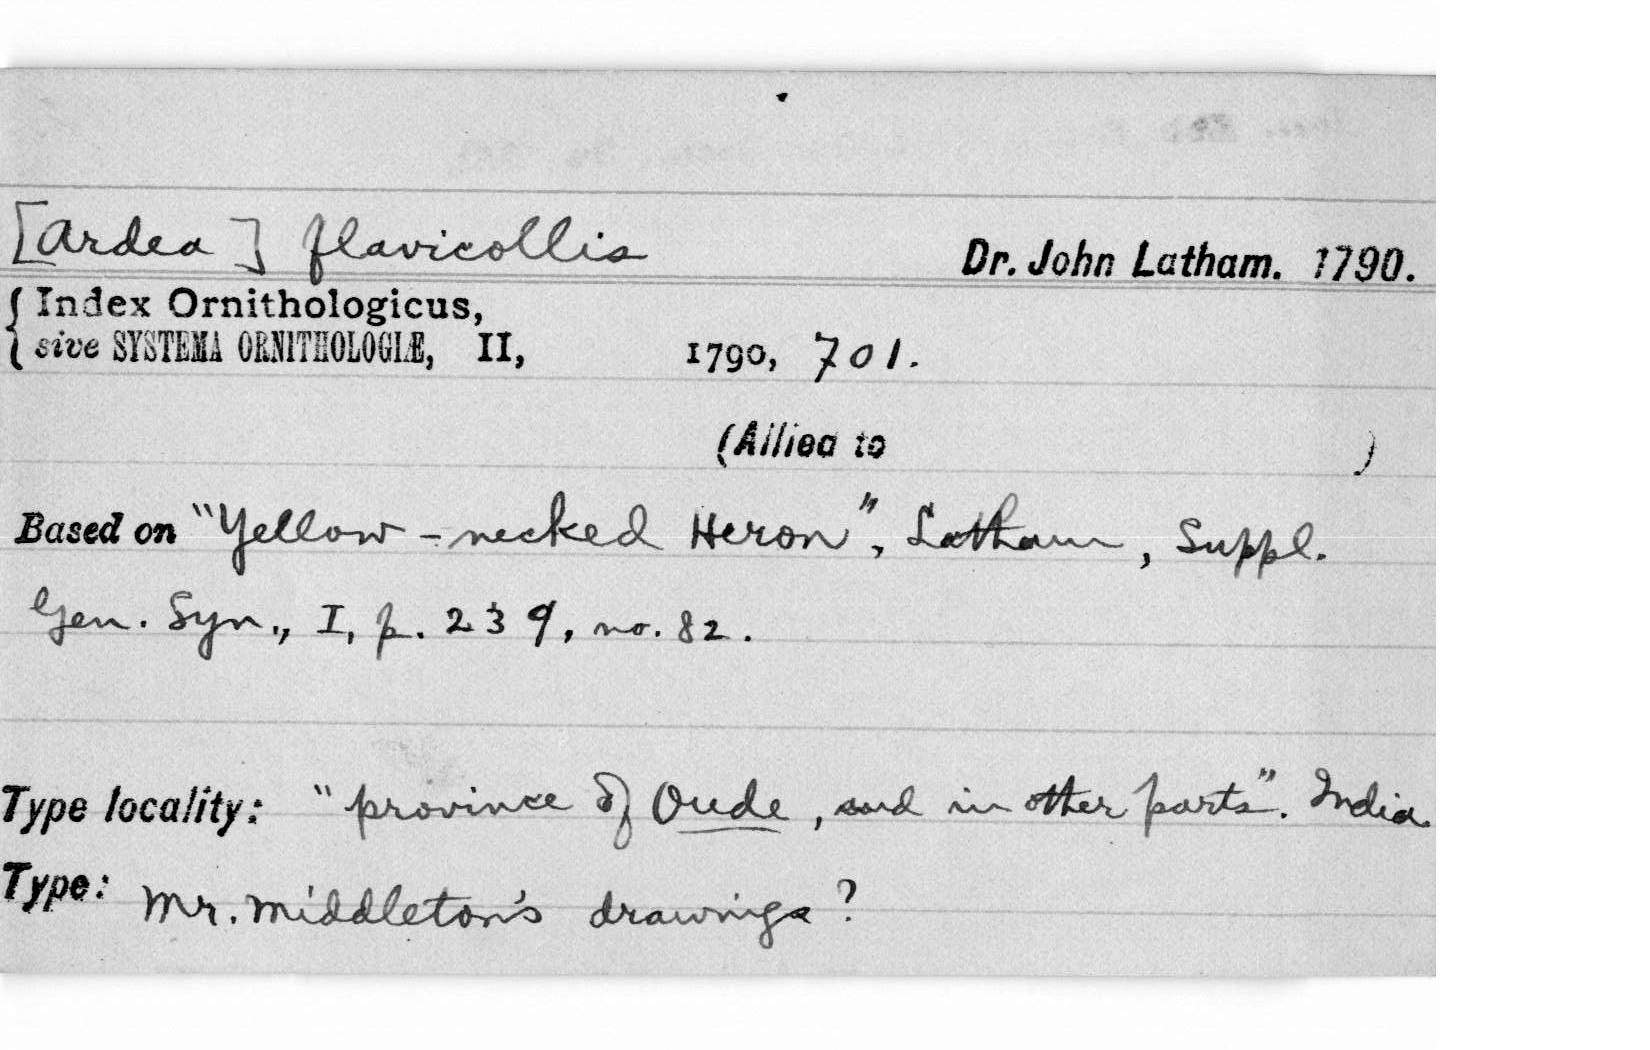 [Ardea] flavicollis Dr. John Latham. 1790.
Index Ornithologicus,
sive SYSTEMA ORNITHOLOGIÆ, II, 1790, 701.
(Allied to )
Based on "Yellow-necked Heron", Latham, Suppl.
Gen. Syn., I, p. 239, no. 82.
Type locality: "province of Oude, and in other parts". India.
Type: Mr. Middleton's drawings?